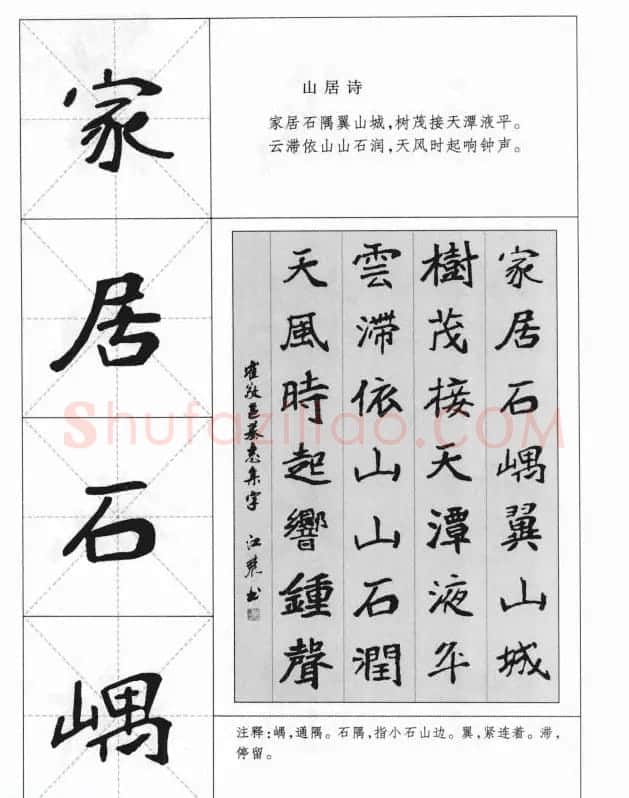 山居诗
家居石隅翼山城，树茂接天潭液平。
云滞依山山石润，天风时起响钟声。
家
居
石
嵎
家居石嵎翼山城
樹茂接天潭液平
雲滞依山山石潤
天風時起響鍾聲
崔敬邕墓志集字 江
注释：嵎，通隅。石隅，指小石山边。翼，紧连着。滞，
停留。
Shufaziliao.COM